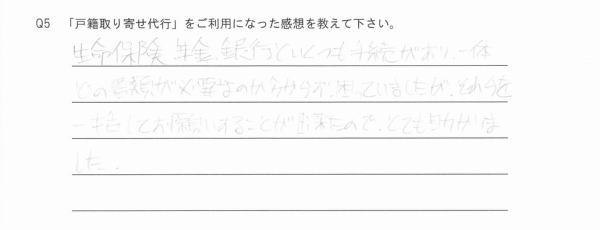 Q5 「戸籍取り寄せ代行」をご利用になった感想を教えて下さい。
生命保険、年金、銀行といくつも手続があり、一体
どの書類が必要なのか分からず、困っていましたが、それらを
一括してお願いすることが出来たので、とても助かりま
した。